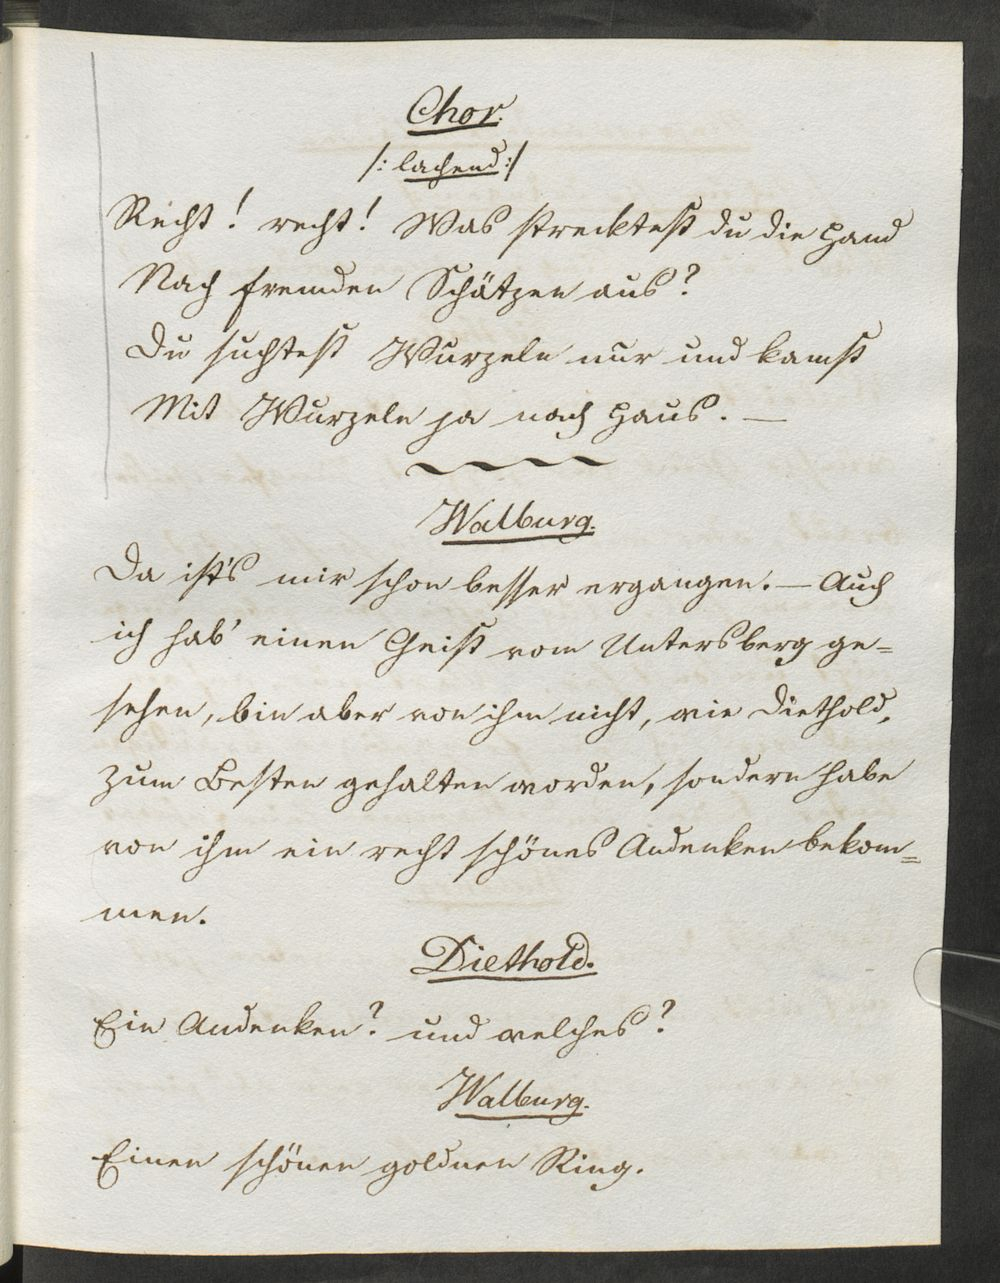 Chor.
/: lachend :/
Recht! recht! Was strecktest du die Hand
Nach fremden Schätzen aus?
Du suchtest Wurzeln nur und kamst
Mit Wurzeln ja nach Haus. —
Walburg.
Da ist's mir schon besser ergangen. — Auch
ich hab' einen Geist vom Untersberg ge=
sehen, bin aber von ihm nicht, wie Diethold,
zum Besten gehalten worden, sondern habe
von ihm ein recht schönes Andenken bekom=
men.
Diethold.
Ein Andenken? und welches?
Walburg.
Einen schönen goldnen Ring.